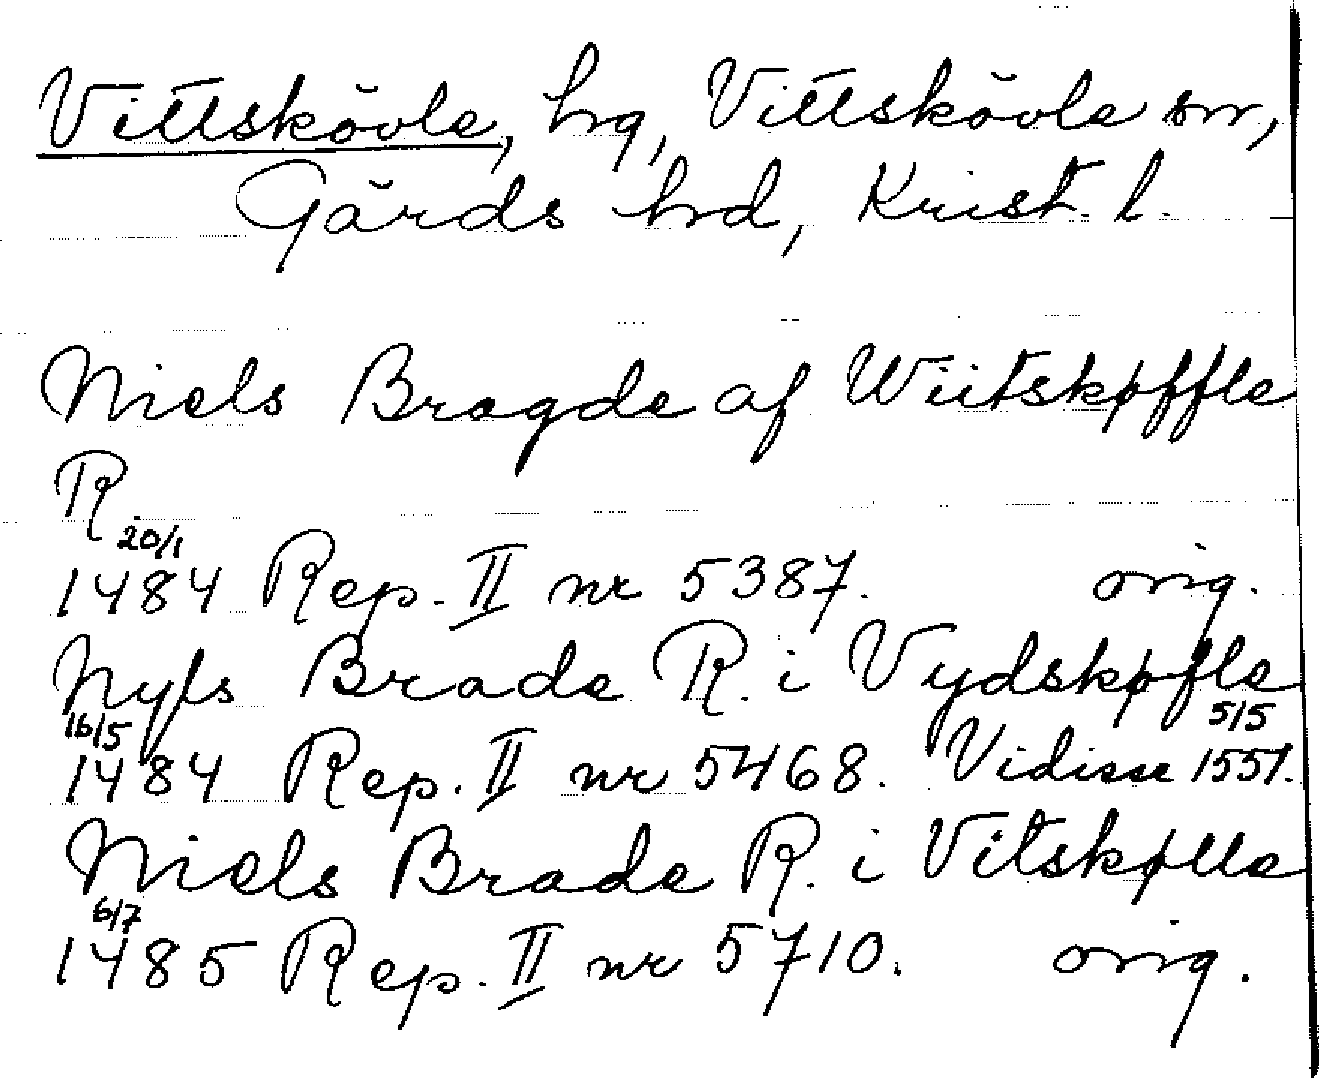 Vittskövle, hrg, Vittskövle sn,
Gärds hrd, Krist. l.
Niels Bragde af Wiitskøffle
R
20/1
1484 Rep. II nr 5387. orig.
Nyls Brade R. i Vydskøfle
16/5 5/5
1484 Rep. II nr 5468. Vidisse 1551.
Niels Brade R. i Vitskølle
6/7
1485 Rep. II nr 5710. orig.